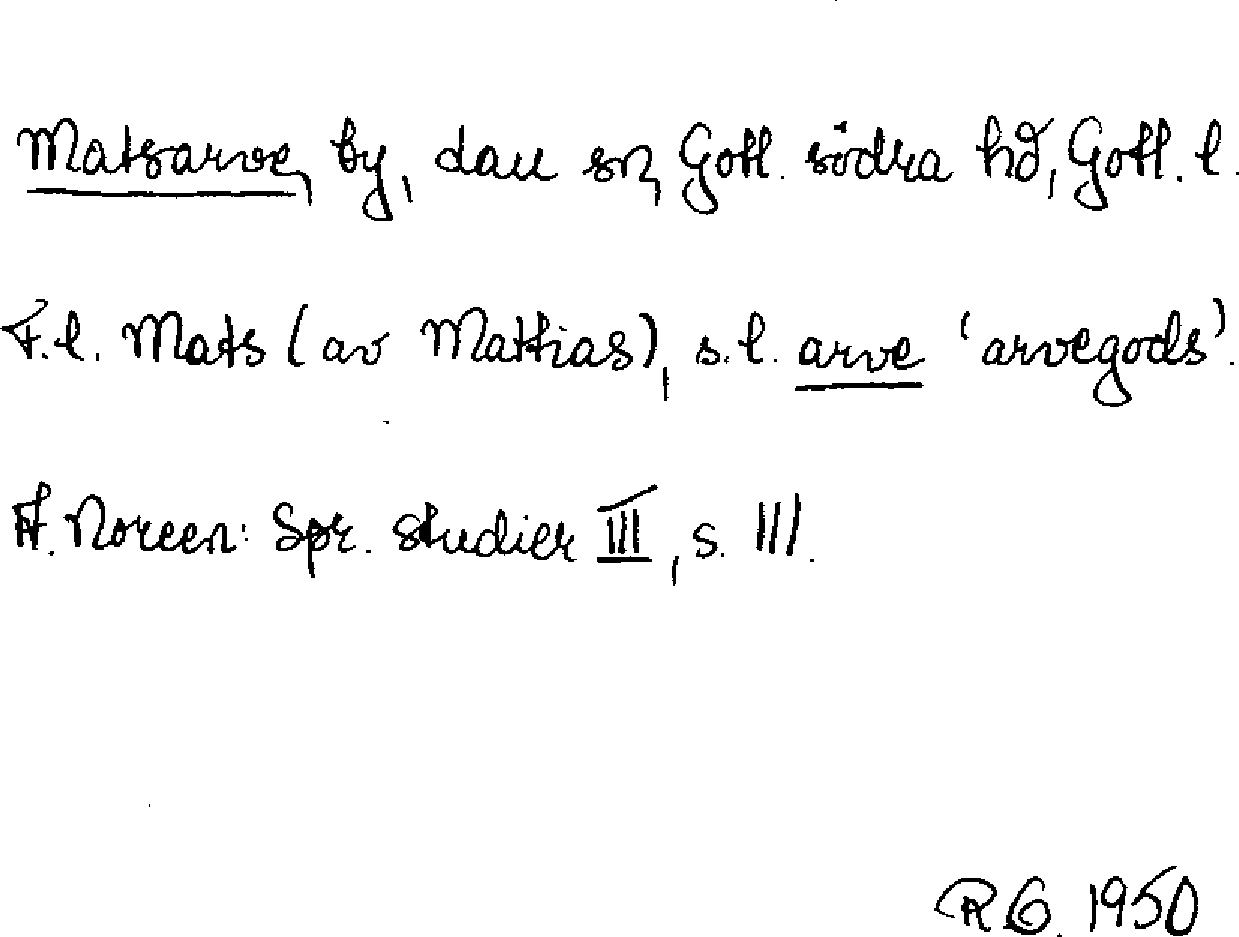 Matsarve, by, Lau sn, Gotl. södra hd, Gotl. l.
F.l. Mats (av Mathias), s.l. arve 'arvegods'.
A. Noreen: Spr. studier III, s. 111.
RG. 1950